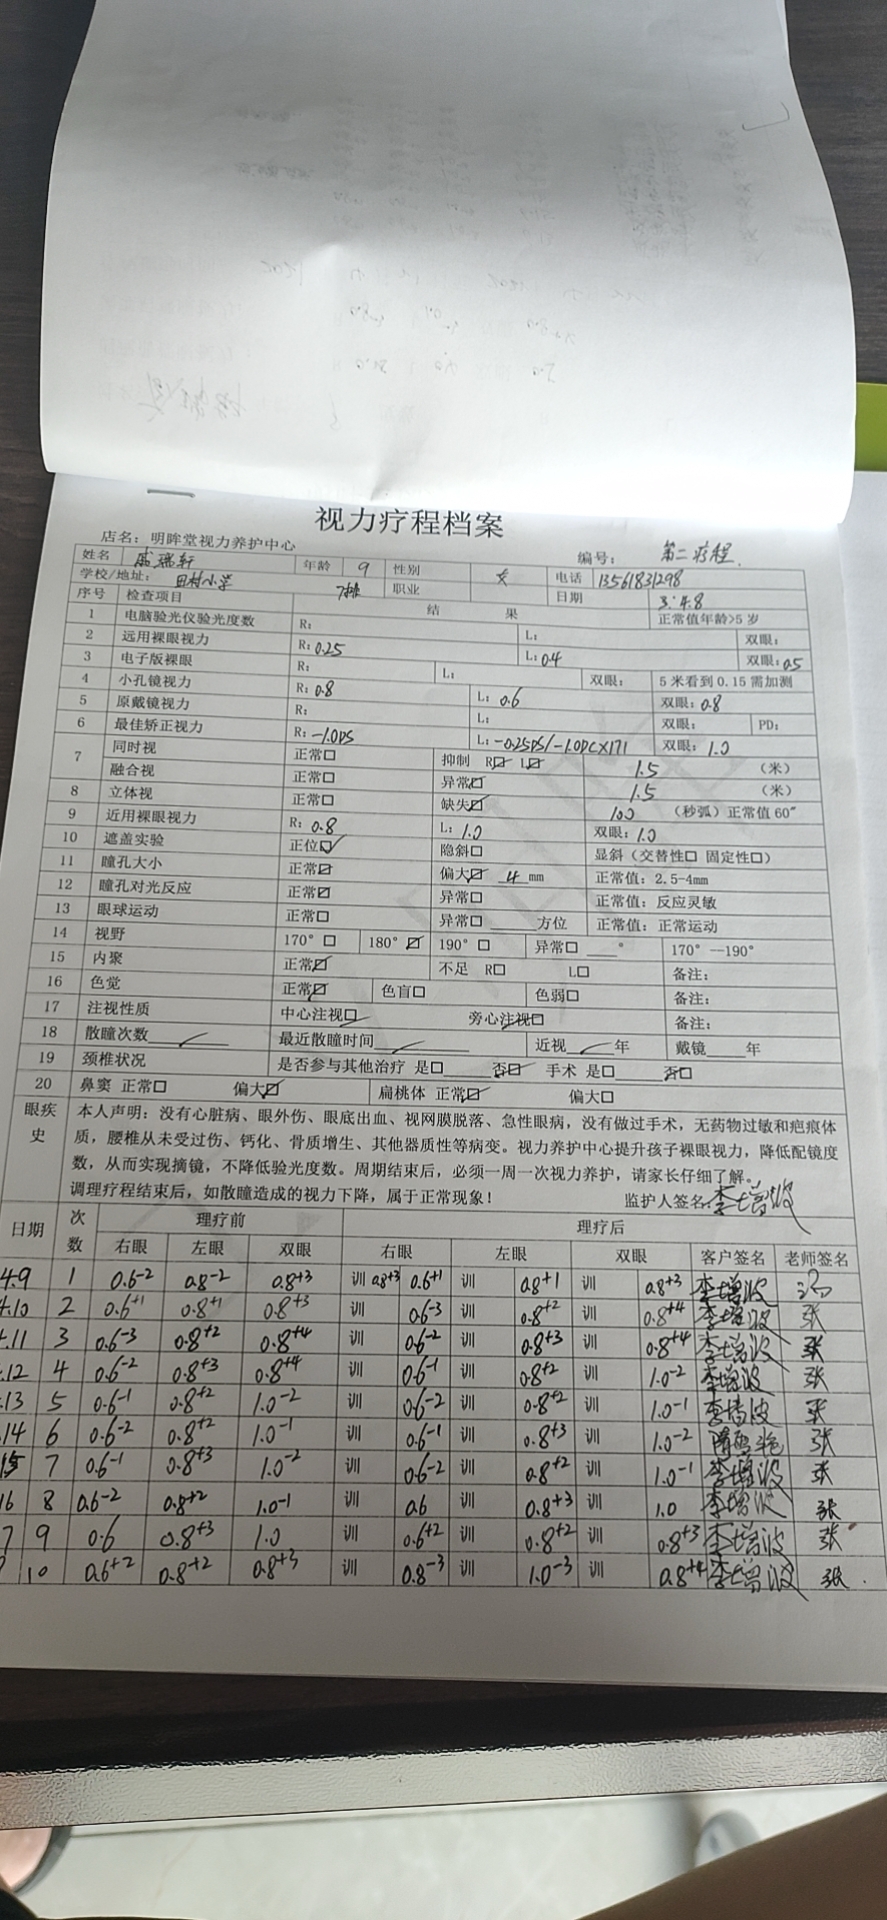 视力疗程档案
店名：明眸堂视力养护中心 编号： 第二疗程
姓名 戚瑞轩 年龄 9 性别 女 电话 13561831298
学校/地址： 田村小学 职业 日期 3.4.8
序号 检查项目 结 果 正常值年龄>5 岁
1 电脑验光仪验光度数 R： L： 双眼：
2 远用裸眼视力 R：0.25 L：0.4 双眼：0.5
3 电子版裸眼 R： L： 双眼： 5 米看到 0.15 需加测
4 小孔镜视力 R：0.8 L：0.6 双眼：0.8
5 原戴镜视力 R： L： 双眼： PD：
6 最佳矫正视力 R：-1.0DS L：-0.25DS/-1.0DC×171 双眼：1.0
7 同时视 正常□ 抑制 R☑ L☑ 1.5 （米）
融合视 正常□ 异常☑ 1.5 （米）
8 立体视 正常□ 缺失☑ 100 （秒弧）正常值 60″
9 近用裸眼视力 R：0.8 L：1.0 双眼：1.0
10 遮盖实验 正位☑ 隐斜□ 显斜（交替性□ 固定性□）
11 瞳孔大小 正常☑ 偏大☑ 4 mm 正常值：2.5-4mm
12 瞳孔对光反应 正常☑ 异常□ 正常值：反应灵敏
13 眼球运动 正常□ 异常□ ____方位 正常值：正常运动
14 视野 170°□ 180°☑ 190°□ 异常□ ___° 170°—190°
15 内聚 正常☑ 不足 R□ L□ 备注：
16 色觉 正常☑ 色盲□ 色弱□ 备注：
17 注视性质 中心注视☑ 旁心注视□ 备注：
18 散瞳次数 最近散瞳时间 近视 年 戴镜____年
19 颈椎状况 是否参与其他治疗 是□ 否☑ 手术 是□ 否☑
20 鼻窦 正常□ 偏大☑ 扁桃体 正常☑ 偏大□
眼疾史 本人声明：没有心脏病、眼外伤、眼底出血、视网膜脱落、急性眼病，没有做过手术，无药物过敏和疤痕体
质，腰椎从未受过伤、钙化、骨质增生、其他器质性等病变。视力养护中心提升孩子裸眼视力，降低配镜度
数，从而实现摘镜，不降低验光度数。周期结束后，必须一周一次视力养护，请家长仔细了解。
调理疗程结束后，如散瞳造成的视力下降，属于正常现象！ 监护人签名：李增波
日期 次数 理疗前 理疗后
右眼 左眼 双眼 右眼 左眼 双眼 客户签名 老师签名
4.9 1 0.6-2 0.8-2 0.8+3 训 0.8+3 0.6+1 训 0.8+1 训 0.8+3 李增波
4.10 2 0.6+1 0.8+1 0.8+3 训 0.6-3 训 0.8+2 训 0.8+4 李增波 张
4.11 3 0.6-3 0.8+2 0.8+4 训 0.6-2 训 0.8+3 训 0.8+4 李增波 张
4.12 4 0.6-2 0.8+3 0.8+4 训 0.6-1 训 0.8+2 训 1.0-2 李增波 张
4.13 5 0.6-1 0.8+2 1.0-2 训 0.6-2 训 0.8+2 训 1.0-1 李增波 张
14 6 0.6-2 0.8+2 1.0-1 训 0.6-1 训 0.8+3 训 1.0-2 张
15 7 0.6-1 0.8+3 1.0-2 训 0.6-2 训 0.8+2 训 1.0-1 李增波 张
16 8 0.6-2 0.8+2 1.0-1 训 0.6 训 0.8+3 训 1.0 李增波 张
7 9 0.6 0.8+3 1.0 训 0.6+2 训 0.8+2 训 0.8+3 李增波 张
10 0.6+2 0.8+2 0.8+3 训 0.8-3 训 1.0-3 训 0.8+4 李增波 张